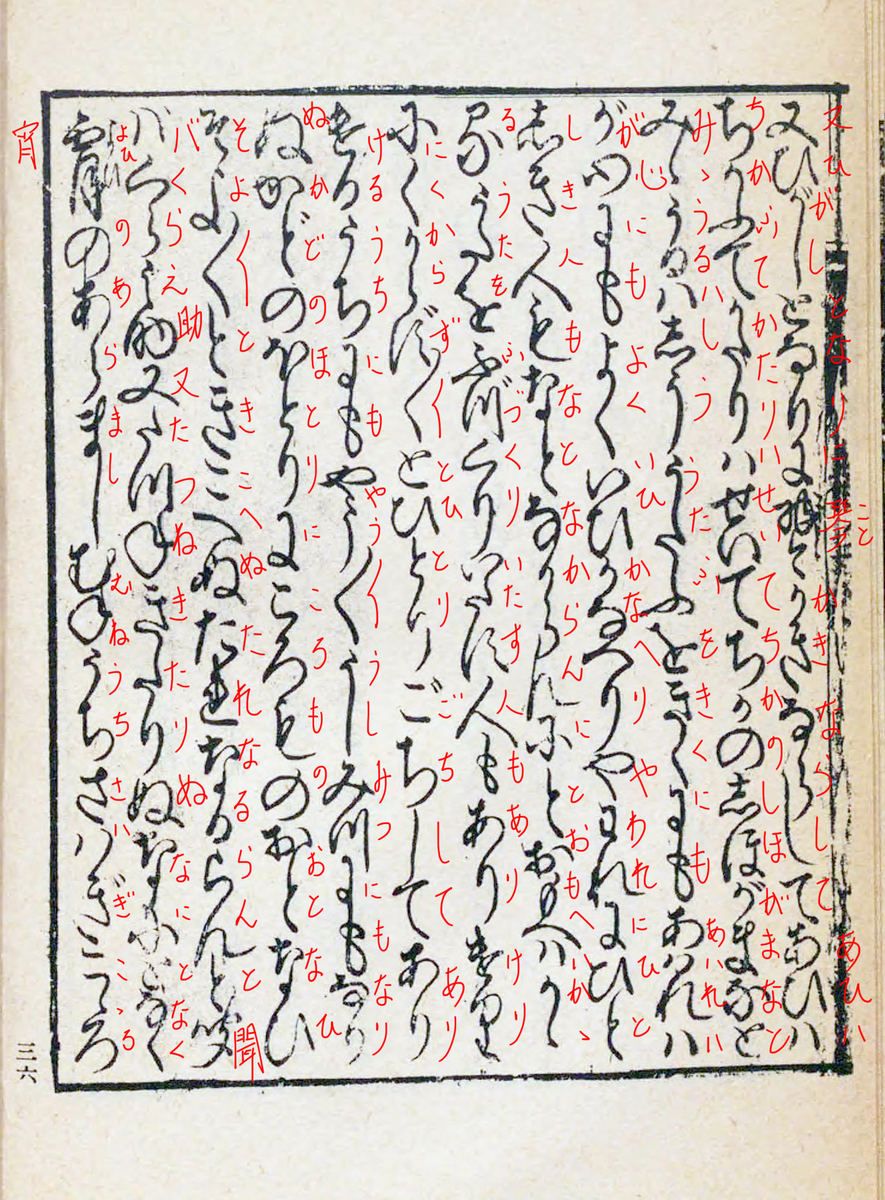 又ひがしとなりに琴かきならしてあひハ
ちかふてかたりハせいてちかのしほがまなと
みゝうるハしううたふをきくにもあハれハ
が心にもよくいひかなへりやわれにひと
しき人もなとなからんにとおもへハかゝ
るうたをふづくりいたす人もありけり
にくからず〱とひとりごちしてあり
けるうちにもやう〱うしみつにもなり
ぬかどのほとりにころものおとなひ
そよ〱ときこへぬたれなるらんと聞
バくらえ助又たつねきたりぬなにとなく
宵のあらましむねうちさハぎこゝろ
三六